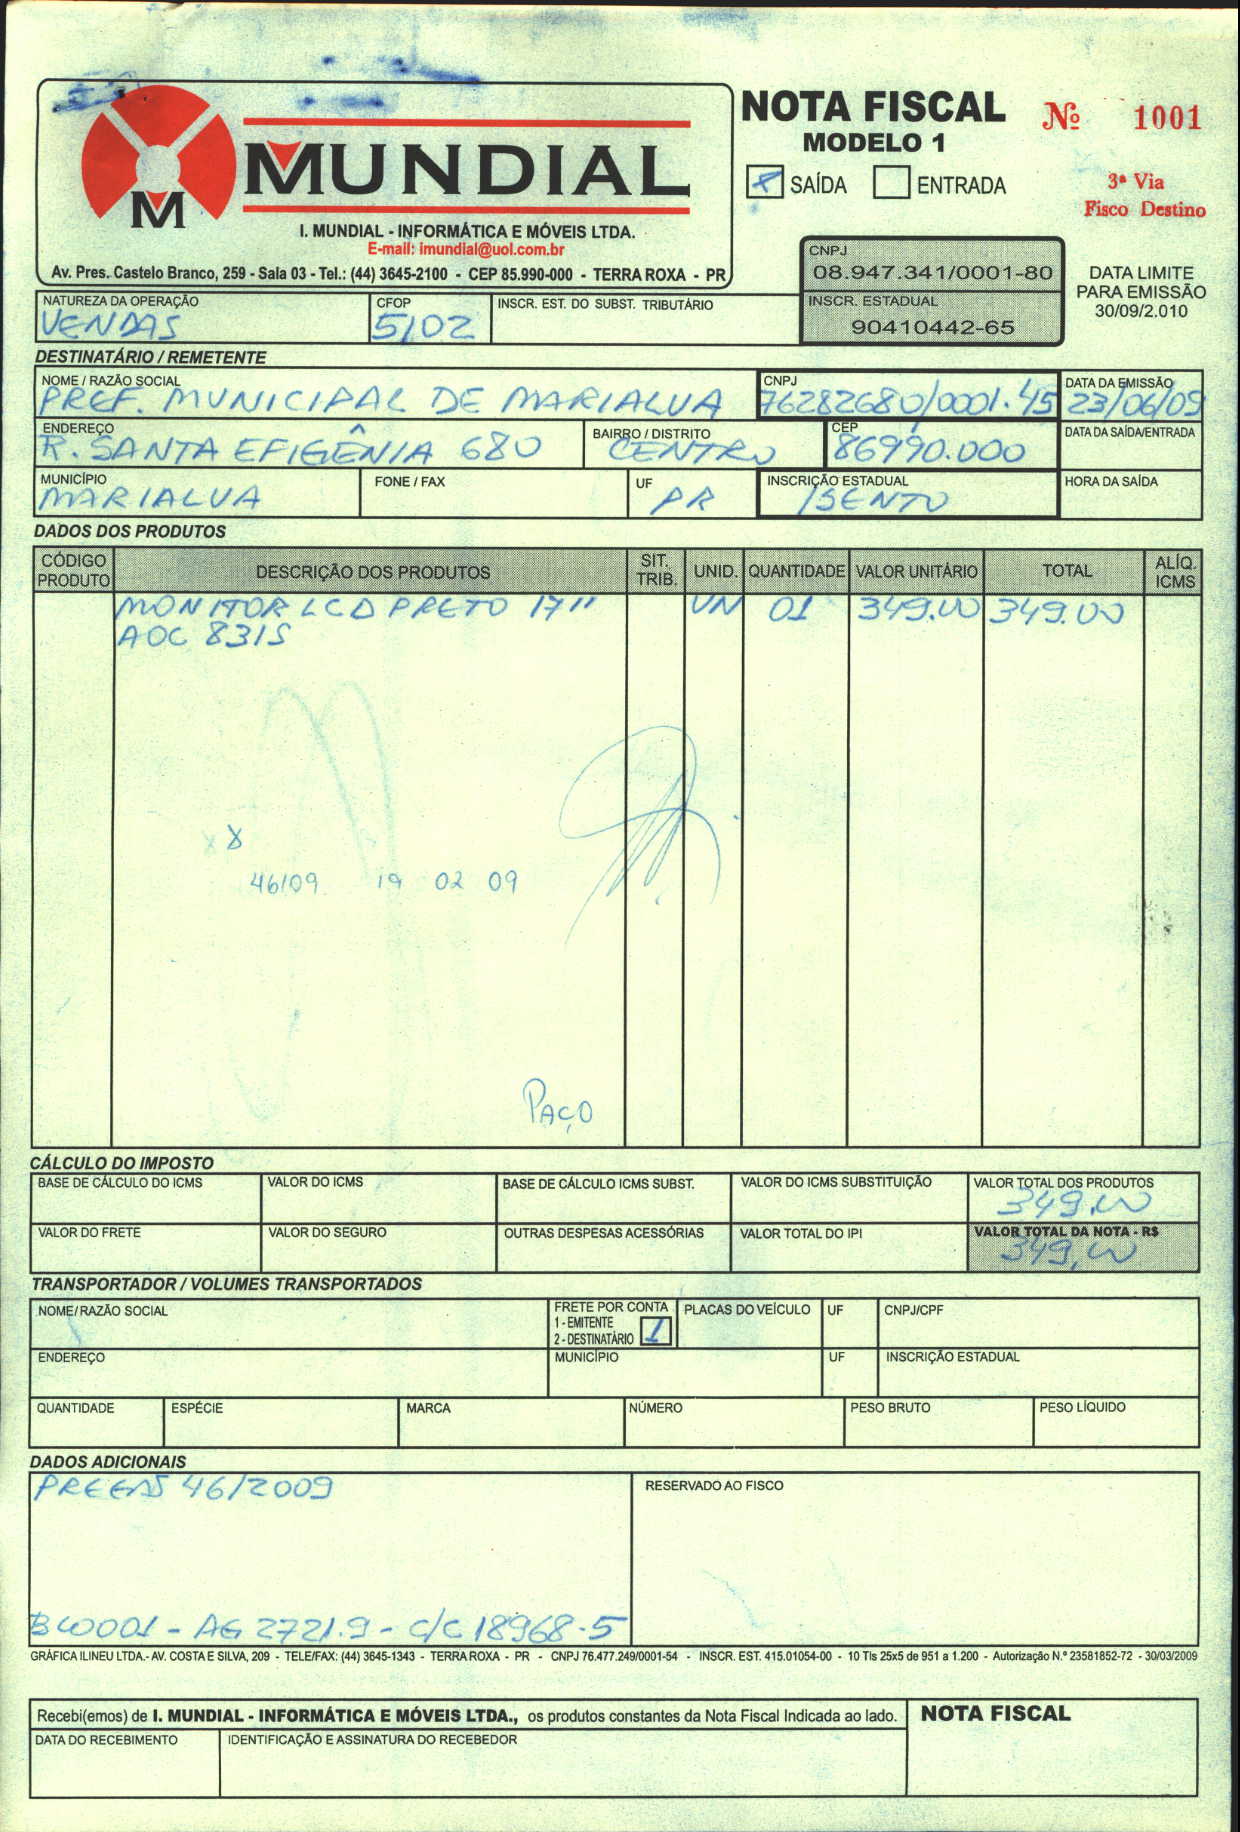 MUNDIAL
M
I. MUNDIAL - INFORMÁTICA E MÓVEIS LTDA.
E-mail: imundial@uol.com.br
Av. Pres. Castelo Branco, 259 - Sala 03 - Tel.: (44) 3645-2100 - CEP 85.990-000 - TERRA ROXA - PR
NOTA FISCAL
MODELO 1
Nº 1001
X SAÍDA ENTRADA
3ª Via
Fisco Destino
CNPJ
08.947.341/0001-80
INSCR. ESTADUAL
90410442-65
DATA LIMITE
PARA EMISSÃO
30/09/2.010
NATUREZA DA OPERAÇÃO CFOP INSCR. EST. DO SUBST. TRIBUTÁRIO
VENDAS 5102
DESTINATÁRIO / REMETENTE
NOME / RAZÃO SOCIAL CNPJ DATA DA EMISSÃO
PREF. MUNICIPAL DE MARIALVA 76282680/0001.45 23/06/09
ENDEREÇO BAIRRO / DISTRITO CEP DATA DA SAÍDA/ENTRADA
R. SANTA EFIGÊNIA 680 CENTRO 86990.000
MUNICÍPIO FONE / FAX UF INSCRIÇÃO ESTADUAL HORA DA SAÍDA
MARIALVA PR ISENTO
DADOS DOS PRODUTOS
CÓDIGO PRODUTO DESCRIÇÃO DOS PRODUTOS SIT. TRIB. UNID. QUANTIDADE VALOR UNITÁRIO TOTAL ALÍQ. ICMS
MONITOR LCD PRETO 17" UN 01 349.00 349.00
AOC 831S
X X
46/09 19 02 09
PAÇO
CÁLCULO DO IMPOSTO
BASE DE CÁLCULO DO ICMS VALOR DO ICMS BASE DE CÁLCULO ICMS SUBST. VALOR DO ICMS SUBSTITUIÇÃO VALOR TOTAL DOS PRODUTOS
349,00
VALOR DO FRETE VALOR DO SEGURO OUTRAS DESPESAS ACESSÓRIAS VALOR TOTAL DO IPI VALOR TOTAL DA NOTA - R$
349,00
TRANSPORTADOR / VOLUMES TRANSPORTADOS
NOME/RAZÃO SOCIAL FRETE POR CONTA PLACAS DO VEÍCULO UF CNPJ/CPF
1 - EMITENTE
2 - DESTINATÁRIO 1
ENDEREÇO MUNICÍPIO UF INSCRIÇÃO ESTADUAL
QUANTIDADE ESPÉCIE MARCA NÚMERO PESO BRUTO PESO LÍQUIDO
DADOS ADICIONAIS
46/2009
RESERVADO AO FISCO
001 - AG 2721.9 - C/C 18968-5
GRÁFICA ILINEU LTDA.- AV. COSTA E SILVA, 209 - TELE/FAX: (44) 3645-1343 - TERRA ROXA - PR - CNPJ 76.477.249/0001-54 - INSCR. EST. 415.01054-00 - 10 Tls 25x5 de 951 a 1.200 - Autorização N.º 23581852-72 - 30/03/2009
Recebi(emos) de I. MUNDIAL - INFORMÁTICA E MÓVEIS LTDA., os produtos constantes da Nota Fiscal Indicada ao lado. NOTA FISCAL
DATA DO RECEBIMENTO IDENTIFICAÇÃO E ASSINATURA DO RECEBEDOR